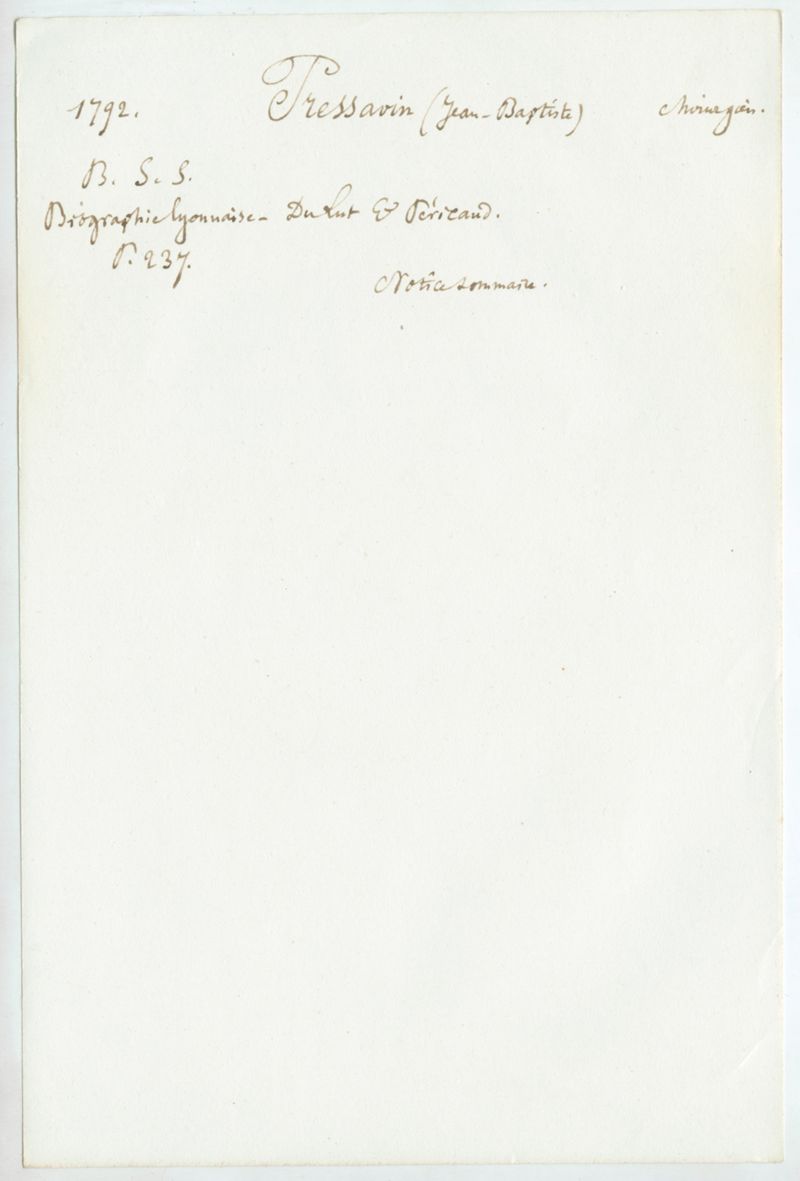 1792. Pressavin (Jean-Baptiste) chirurgien.
B. S. S.
Biographie lyonnaise - Du Lut & Péricaud.
P. 237.
Notice sommaire.